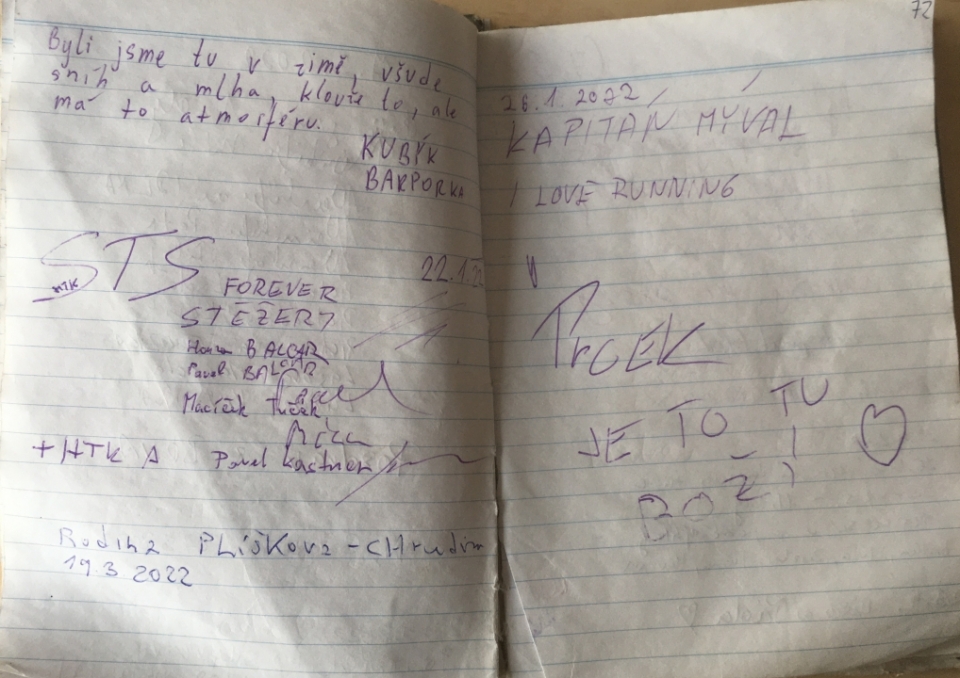 Byli jsme tu v zimě, všude
sníh a mlha, klouže to, ale
má to atmosféru.
KUBÍK
BARPORKA
STS
HTK
22.1.22
FOREVER
STĚŽERY
Honza BALCAR
Pavel BALCAR
Macíček Tuček
Míra
+ HTK A Pavel Kastner
Rodina PLíšKova - CHrudim
19.3 2022
72
26.1.2022
KAPITÁN MÝVAL
I LOVE RUNNING
PrCEK
JE TO TU
BOŽÍ